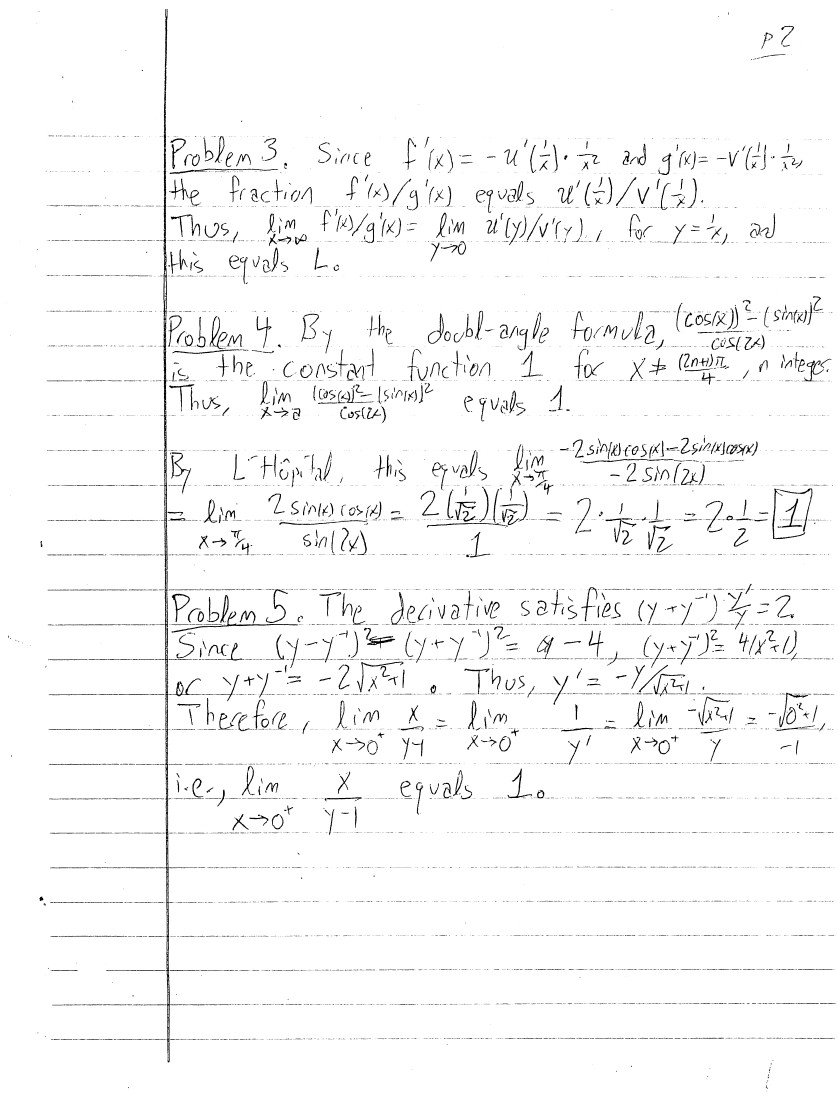 p2
Problem 3. Since f'(x) = -u'(1/x)·1/x² and g'(x) = -v'(1/x)·1/x²,
the fraction f'(x)/g'(x) equals u'(1/x)/v'(1/x).
Thus, lim x→∞ f'(x)/g'(x) = lim y→0 u'(y)/v'(y), for y = 1/x, and
this equals L.
Problem 4. By the doubl-angle formula, ((cos(x))² - (sin(x))²)/cos(2x)
is the constant function 1 for x ≠ (2n+1)π/4, n integer.
Thus, lim x→a ((cos(x))² - (sin(x))²)/cos(2x) equals 1.
By L'Hôpital, this equals lim x→π/4 (-2sin(x)cos(x) - 2sin(x)cos(x))/(-2sin(2x))
= lim x→π/4 2sin(x)cos(x)/sin(2x) = 2(1/√2)(1/√2)/1 = 2·1/√2·1/√2 = 2·1/2 = 1
Problem 5. The derivative satisfies (y+y⁻¹)·y'/y = 2.
Since (y-y⁻¹)² - (y+y⁻¹)² = -4, (y+y⁻¹)² = 4(x²+1),
or y+y⁻¹ = -2√(x²+1). Thus, y' = -y/√(x²+1).
Therefore, lim x→0⁺ x/(y-1) = lim x→0⁺ 1/y' = lim x→0⁺ -√(x²+1)/y = -√(0²+1)/-1,
i.e., lim x→0⁺ x/(y-1) equals 1.